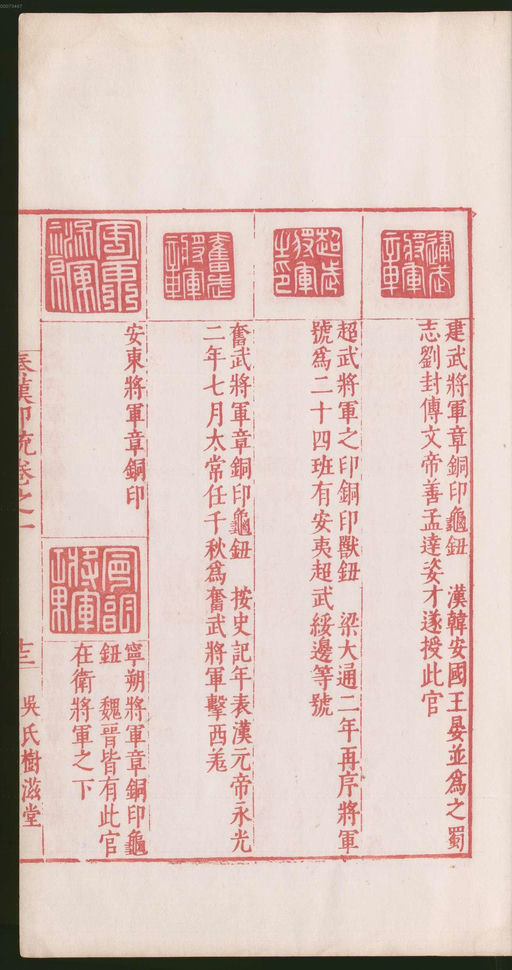 建武將軍章銅印龜鈕　漢韓安國王晏並爲之蜀
志劉封傳文帝善孟達姿才遂授此官
超武將軍之印銅印獸鈕　梁大通二年再序將軍
號爲二十四班有安夷超武綏邊等號
奮武將軍章銅印龜鈕　按史記年表漢元帝永光
二年七月太常任千秋爲奮武將軍擊西羌
安東將軍章銅印
寧朔將軍章銅印龜
鈕　魏晉皆有此官
在衛將軍之下
秦漢印統卷之一
十三
吳氏樹滋堂
00073467